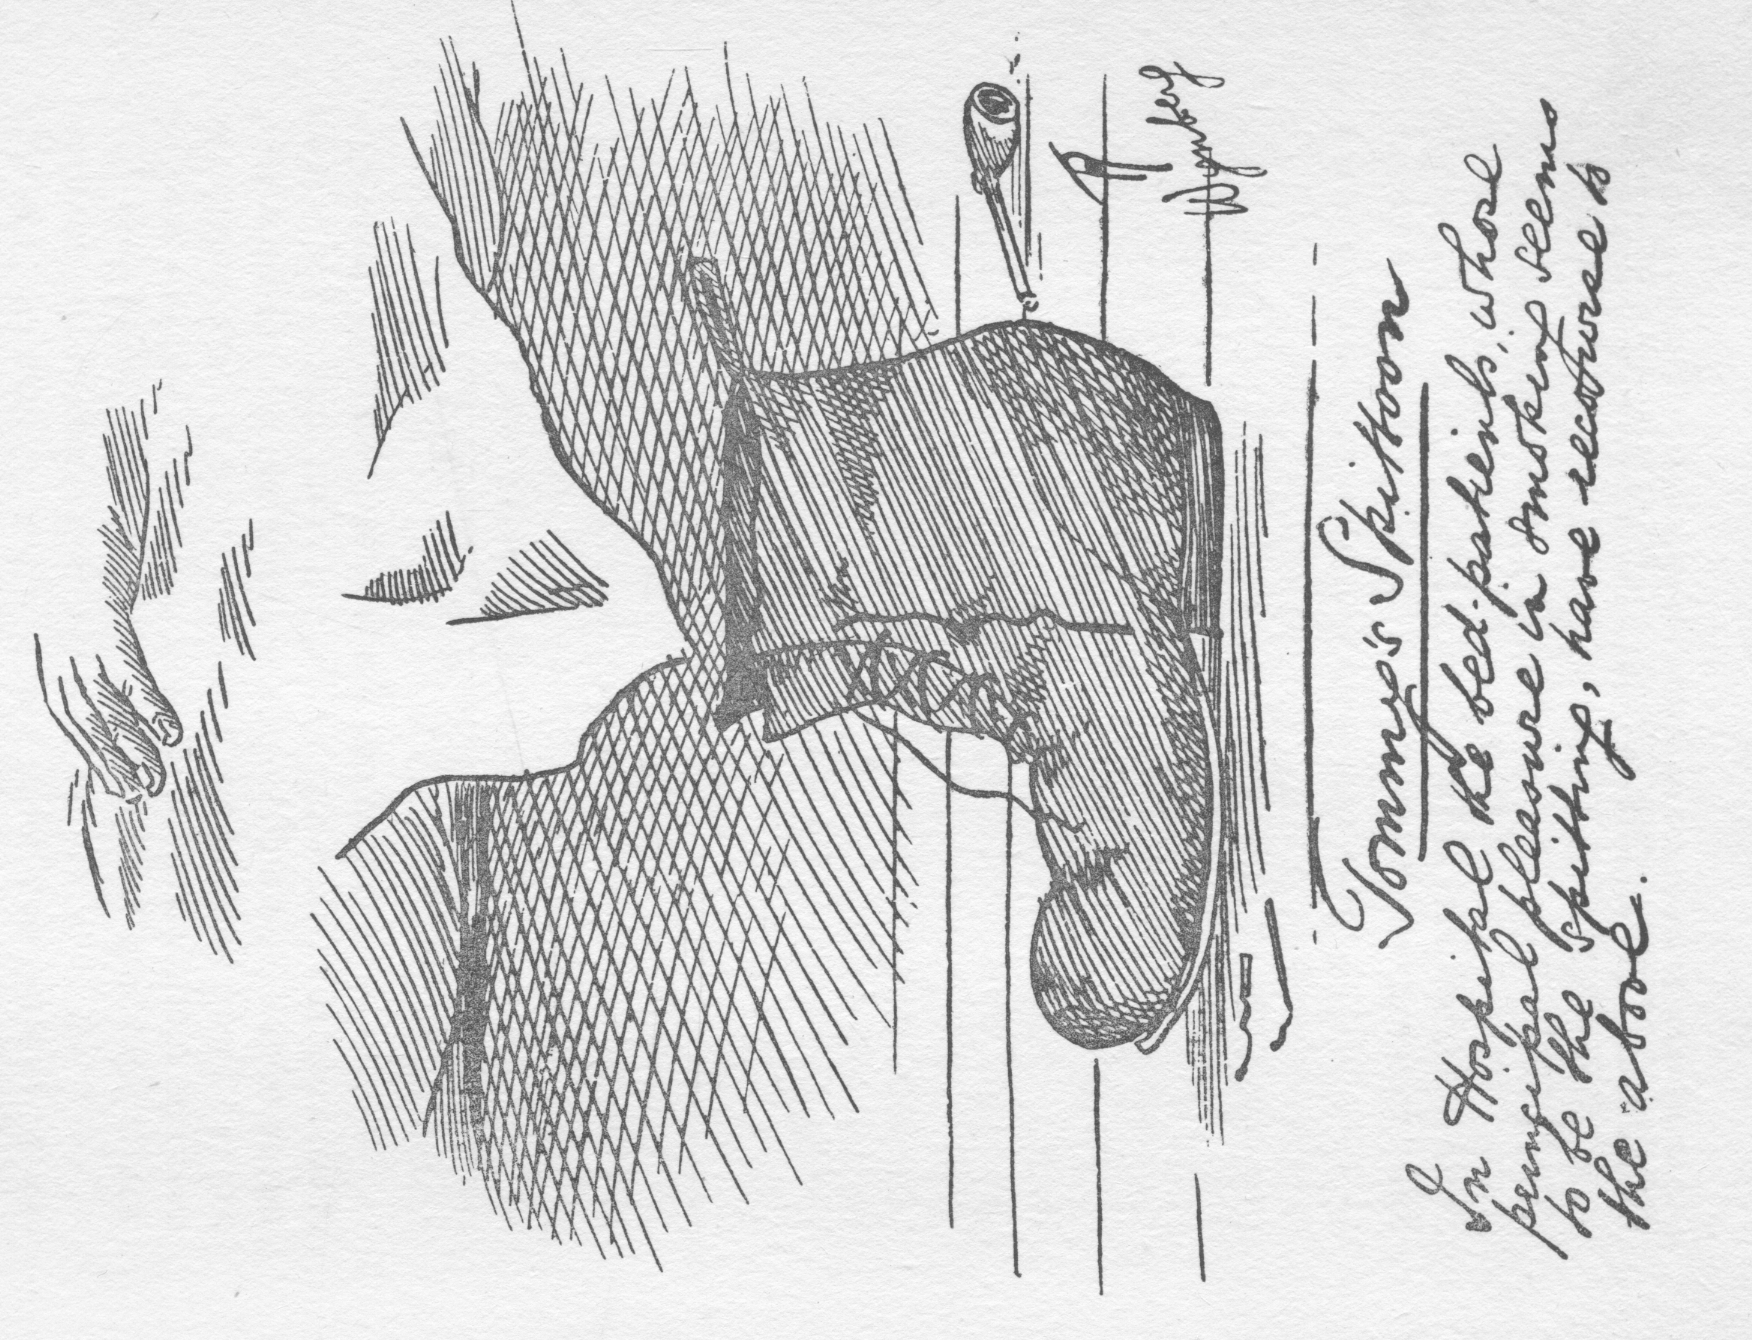 Wynberg
Tommy's Spittoon
In Hospital the bed-patients, whose
principal pleasure in smoking seems
to be the spitting, have recourse to
the above.